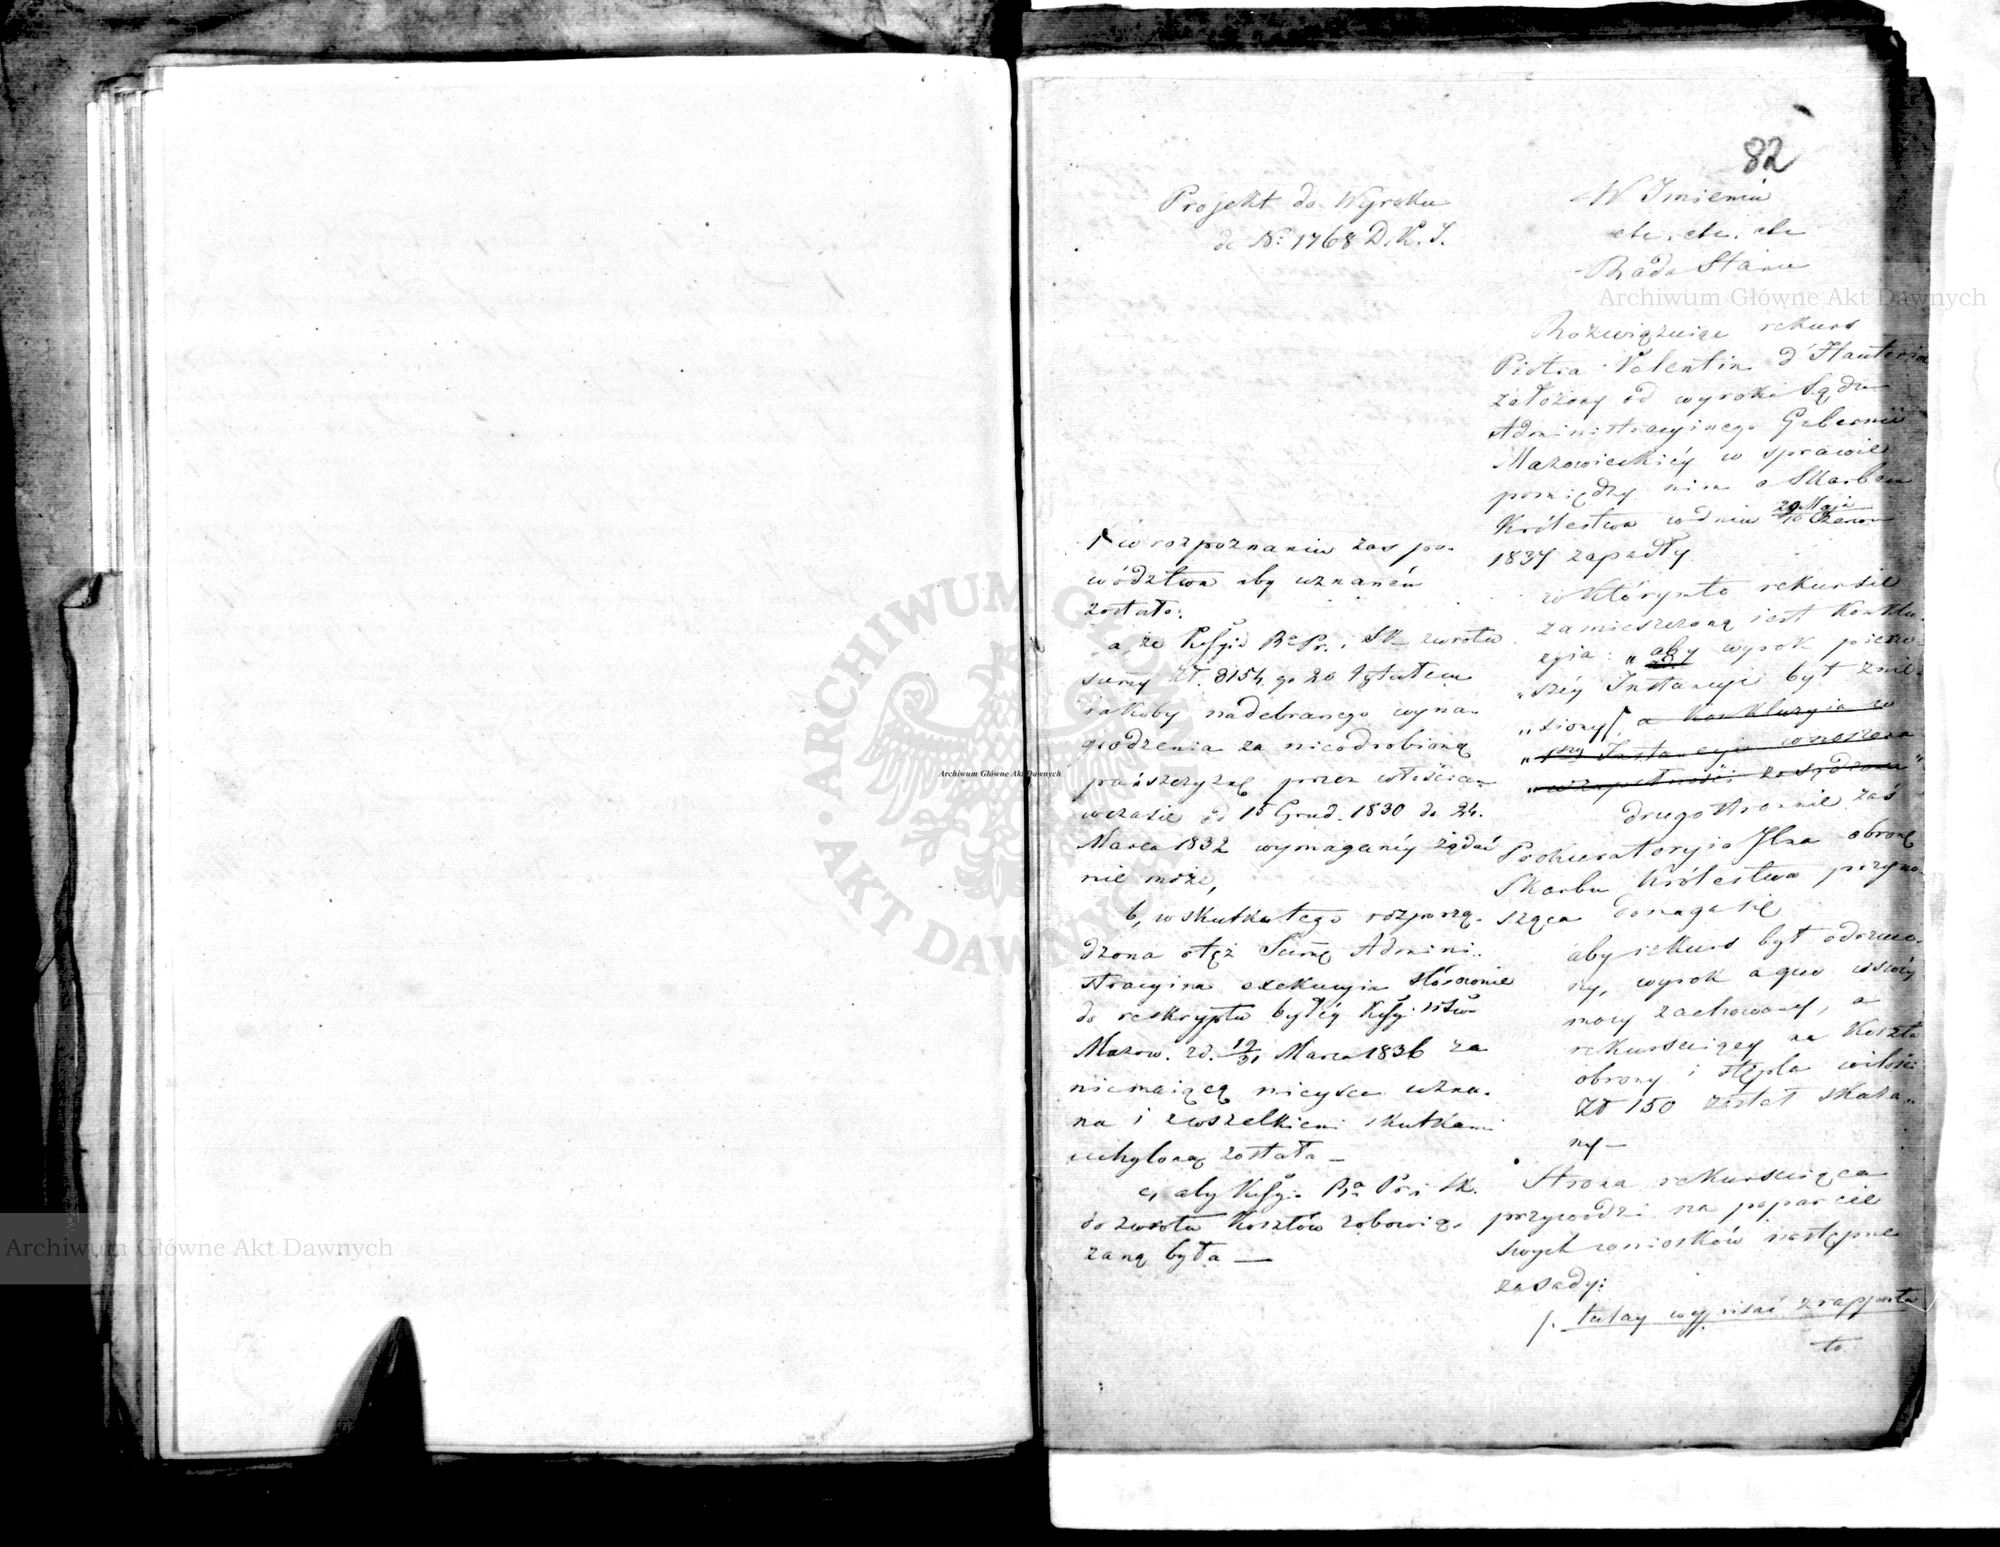 82
Projekt do Wyroku
do No: 1768 D.K.J.
W Imieniu
etc. etc. etc
Rada Stanu
Rozwiązuiąc rekurs
Piotra Valentin d'Hauterive
założony od wyroku Sądu
Administracyinego Gubernii
Mazowieckiéy w sprawie
pomiędzy nim a Skarbem
Królestwa w dniu 29 Maja / 10 Czerw
1837 zapadły
w którymto rekursie
zamieszczoną iest konklu-
zyia: „aby wyrok pierw-
„széy Instancyi był znie-
„siony, a konkluzyia w
„ Instancyi wniesiona
„w zupełności zasądzona"
drugostronnie zaś
Prokuratoryia Jlna obronę
Skarbu Królestwa przyno-
sząca domaga się
aby rekurs był odrzuco-
ny, wyrok a quo w swéy
mocy zachowany, a
rekursuiący na koszta
obrony i stępla w ilości
Zł 150 został skaza-
ny —
Strona rekursuiąca
przywodzi na poparcie
swych wniosków następne
zasady:
/. tutay wypisać z rapportu
to
w rozpoznaniu zaś po-
wództwa aby uznaném
zostało:
a, że Kssyia Rz Pr. i Sk zwrotu
summy Zł. 8154 gr 20 tytułem
iakoby nadebranego wyna-
grodzenia za nieodrobioną
pańszczyznę przez włościan
w czasie od 15 Grud. 1830 do 24.
Marca 1832 wymaganéy żądać
nie może,
b, w skutku tego rozporzą-
dzona o tęż Summę Admini-
stracyina exekucyia stósownie
do reskryptu byłéy Kssyi Wtwa
Mazow. z d. 19/31 Marca 1836 za
niemaiącą mieysca uzna-
na i z wszelkiemi skutkami
uchyloną została —
c, aby Kssyia Rz Pr i Sk.
do zwrotu kosztów zobowią-
zaną była —
Archiwum Główne Akt Dawnych
Archiwum Główne Akt Dawnych
Archiwum Główne Akt Dawnych
ARCHIWUM GŁÓWNE AKT DAWNYCH